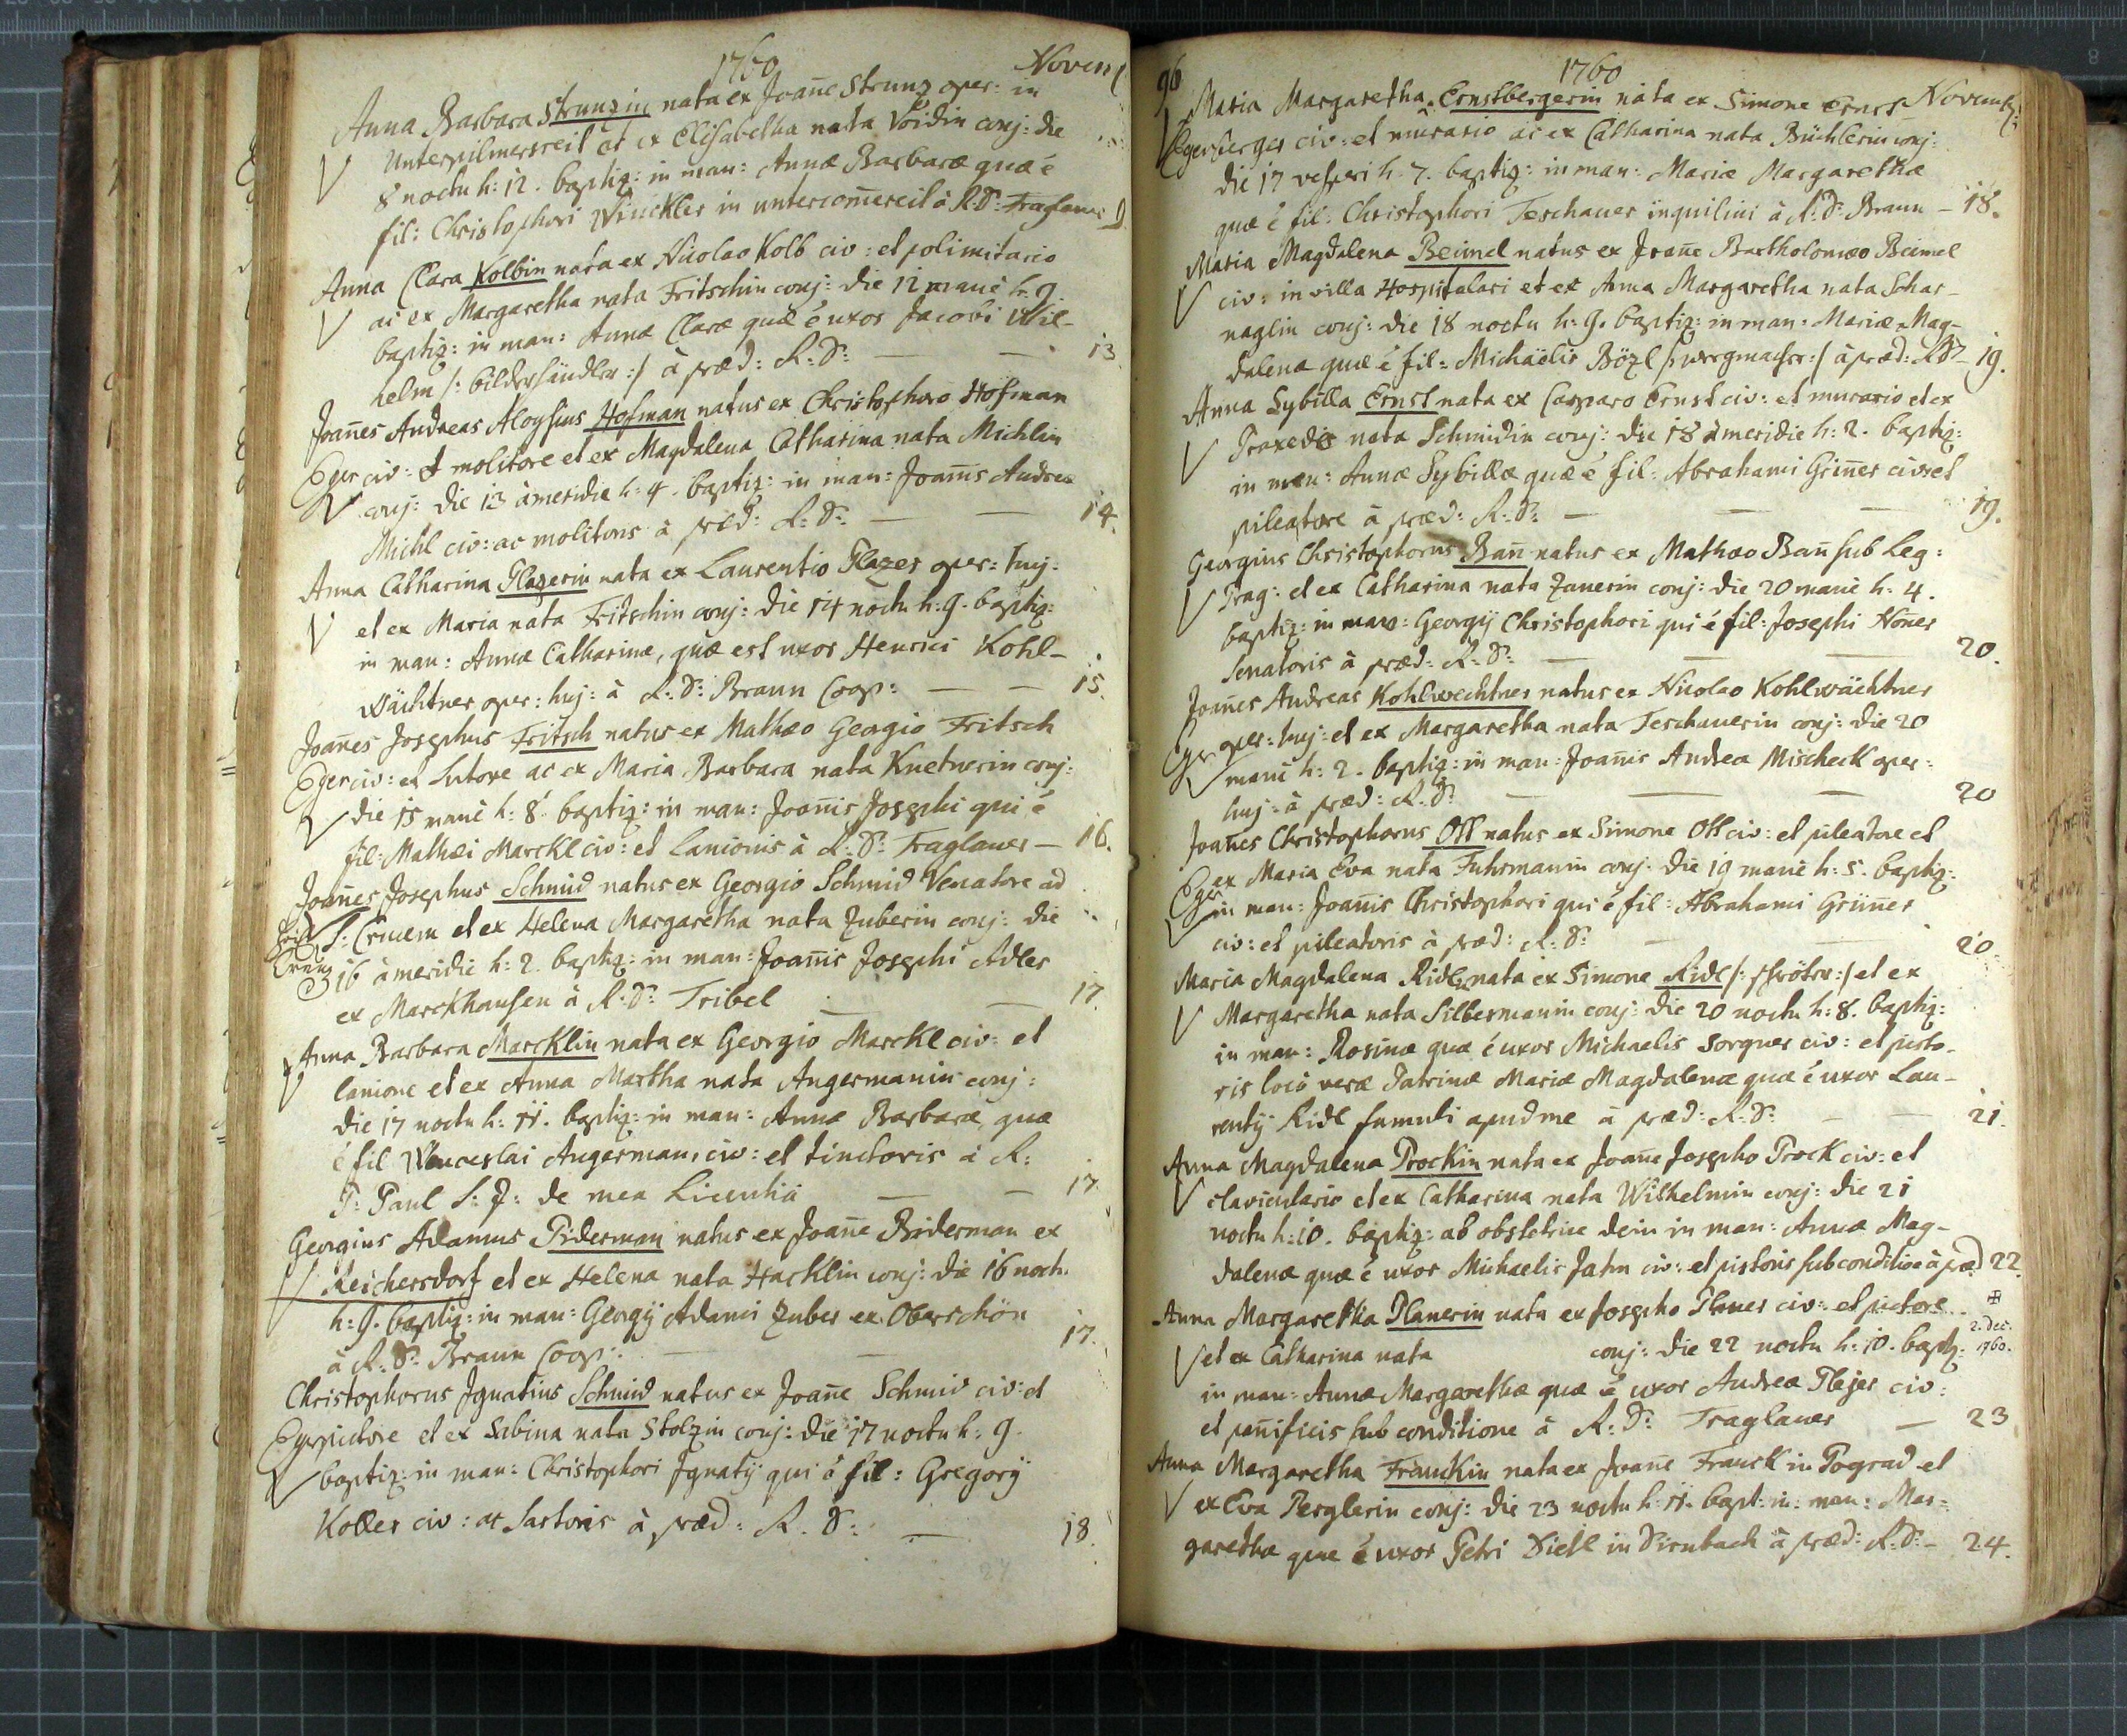 1760 Novem
Anna Barbara Strunzin nata ex Joanne Strunz oper: in
Unterpilmersreit et ex Elisabetha nata Voidin conj: die
8 noctu h: 12. baptiz: in man: Annæ Barbaræ quæ ē
fil: Christophori Winckler in à R: D: Traglauer 9
Anna Clara Kolbin nata ex Nicolao Kolb civ: et polimitario
ac ex Margaretha nata Fritschin conj: die 12 manè h: 9.
baptiz: in man: Annæ Claræ quæ ē uxor Jacobi Wil-
helm /: bilderhändler :/ à præd: R: D: — — 13
Joanes Andreas Aloysius Hofman natus ex Christophoro Hofman
Eger civ: et molitore et ex Magdalena Catharina nata Michlin
conj: die 13 à meridie h: 4. baptiz: in man: Joanis Andreæ
Michl civ: ac molitoris à præd: R: D: — — 14.
Anna Catharina Plazerin nata ex Laurentio Plazer oper: huj:
et ex Maria nata Fritschin conj: die 14 noctu h: 9. baptiz:
in man: Annæ Catharinæ, quæ est uxor Henrici Kohl-
wächtner oper: huj: à R: D: Braun Coop: — — 15.
Joanes Josephus Fritsch natus ex Mathæo Georgio Fritsch
Eger civ: et Sutore ac ex Maria Barbara nata Knetnerin conj:
die 15 manè h: 8. baptiz: in man: Joanis Josephi qui ē
fil: Mathæi Marckl civ: et Lanionis à R: D: Traglauer — 16.
Joanes Josephus Schmid natus ex Georgio Schmid Venatore ad
S: Crucem et ex Helena Margaretha nata Zuberin conj: die
Creuz 16 à meridie h: 2. baptiz: in man: Joanis Josephi Adler
ex Marckhausen à R: D: Tribel — 17.
Anna Barbara Marcklin nata ex Georgio Marckl civ: et
lanione et ex Anna Martha nata Angermanin conj:
die 17 noctu h: 11. baptiz: in man: Annæ Barbaræ quæ
ē fil Wenceslai Angerman, civ: et tinctoris à R:
P: Paul S: J: de mea Licentia — — 17.
Georgius Adamus Piderman natus ex Joane Biderman ex
Reichersdorf et ex Helena nata Hacklin conj: die 16 noctu
h: 9. baptiz: in man: Georgij Adami Zuber ex Oberschön
à R: D: Braun Coop: — — 17.
Christophorus Ignatius Schmid natus ex Joane Schmid civ: et
Eger pictore et ex Sabina nata Stolzin conj: die 17 noctu h: 9.
baptiz: in man: Christophori Ignatij qui ē fil: Gregorij
Koller civ: ac Sartoris à præd: R: D: — 18.
96 1760 Novemb:
Maria Margaretha Ernstbergerin nata ex Simone Ernst-
Eger berger civ: et murario ac ex Catharina nata Büchlerin conj:
die 17 vesperi h: 7. baptiz: in man: Mariæ Margarethæ
quæ ē fil: Christophori Teschauer inquilini à R: D: Braun — 18.
Maria Magdalena Beimel natus ex Joane Bartholomæo Beimel
civ: in villa Hospitalari et ex Anna Margaretha nata Schar-
naglin conj: die 18 noctu h: 9. baptiz: in man: Mariæ Mag-
dalenæ quæ ē fil: Michäelis Bözl à præd: R: D: — 19.
Anna Sybilla Ernst nata ex Casparo Ernst civ: et murario et ex
Praxedis nata Schmidin conj: die 18 à meridie h: 2. baptiz:
in man: Annæ Sybillæ quæ ē fil: Abrahami Griner civis et
pileatore à præd: R: D: — — — 19.
Georgius Christophorus Ban natus ex Mathæo Ban sub Leg:
Prag: et ex Catharina nata Zanerin conj: die 20 manè h: 4.
baptiz: in man: Georgij Christophori qui ē fil: Josephi Höner
Senatoris à præd: R: D: — — — 20.
Joanes Andreas Kohlwechtner natus ex Nicolao Kohlwächtner
Eger oper: huj: et ex Margaretha nata Teschauerin conj: die 20
manè h: 2. baptiz: in man: Joanis Andreæ Mischeck oper:
huj: à præd: R: D: — — — 20
Joanes Christophorus Ott natus ex Simone Ott civ: et pileatore et
Eger ex Maria Eva nata Fuhrmanin conj: die 19 manè h: 5. baptiz:
in man: Joanis Christophori qui ē fil: Abrahami Griner
civ: et pileatoris à præd: R: D: — — 20.
Maria Magdalena Ridlin nata ex Simone Ridl /: schröter :/ et ex
Margaretha nata Silbermanin conj: die 20 noctu h: 8. baptiz:
in man: Rosinæ quæ ē uxor Michaelis Sorgner civ: et pisto-
ris locò veræ Patrinæ Mariæ Magdalenæ quæ ē uxor Lau-
rentij Ridl famuli apud me à præd: R: D: — — 21.
Anna Magdalena Prockin nata ex Joane Josepho Prock civ: et
claviculario et ex Catharina nata Wilhelmin conj: die 21
noctu h: 10. baptiz: ab obstetrice dein in man: Annæ Mag-
dalenæ quæ ē uxor Michaelis Jahn civ: et pistoris sub conditione à præd 22.
Anna Margaretha Planerin nata ex Josepho Planer civ: et pictore ✠ 2. Dec: 1760.
et ex Catharina nata conj: die 22 noctu h: 10. baptiz:
in man: Annæ Margarethæ quæ ē uxor Andreæ Plejer civ:
et panificis sub conditione à R: D: Traglauer — 23
Anna Margaretha Franckin nata ex Joane Franck in Pograd et
ex Eva Perglerin conj: die 23 noctu h: 11. bapt: in: man: Mar=
garethæ quæ ē uxor Petri Dietl in Dirnbach à præd: R: D: — 24.